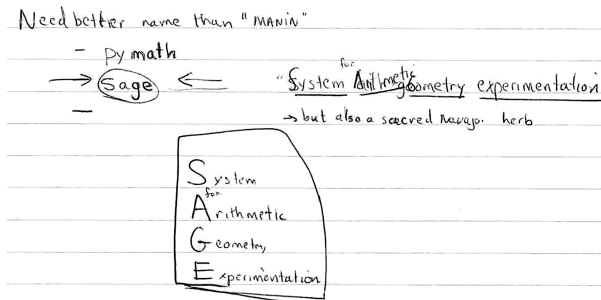 Need better name than "MANIN"
- pymath
→ sage ← "System for Arithmetic geometry experimentation
→ but also a sacred Navajo. herb
—
System
for
Arithmetic
Geometry
Experimentation